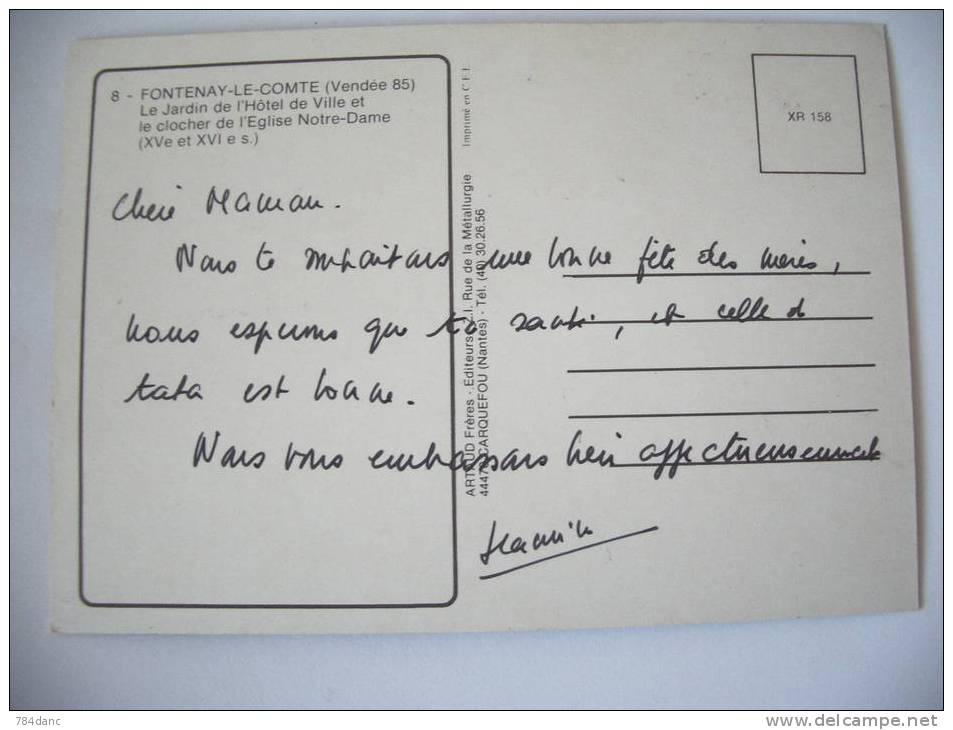 8 - FONTENAY-LE-COMTE (Vendée 85)
Le Jardin de l'Hôtel de Ville et
le clocher de l'Eglise Notre-Dame
(XVe et XVI e s.)
Chère Maman.
Nous te souhaitons une bonne fête des mères,
nous espérons que ta santé, et celle de
tata est bonne.
Nous vous embrassons bien affectueusement
ARTAUD Frères - Editeurs Z.I. Rue de la Métallurgie
44470 CARQUEFOU (Nantes) - Tél. (40) 30.26.56
Imprimé en C.E.E.
XR 158
784danc
www.delcampe.net